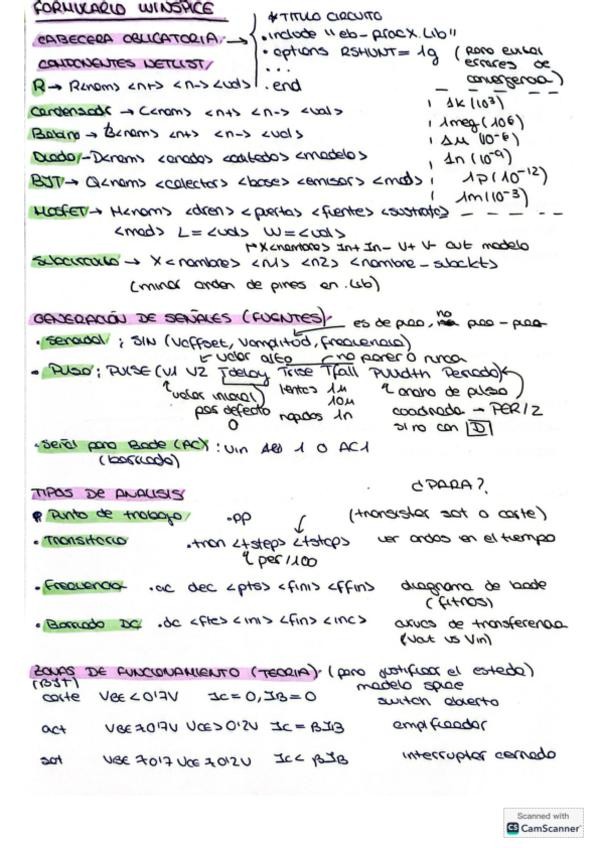 FORMULARIO WINSPICE
CABECERA OBLIGATORIA →
* TITULO CIRCUITO
.include "eb-procX.lib"
.options RSHUNT=1g (para evitar errores de convergencia)
...
.end
COMPONENTES NETLIST
R → R<nom> <n+> <n-> <val>
Condensador → C<nom> <n+> <n-> <val>
Bobina → <nom> <n+> <n-> <val>
Diodo - D<nom> <anodo> <catodo> <modelo>
BJT → Q<nom> <colector> <base> <emisor> <mod>
MOSFET → M<nom> <dren> <puerta> <fuente> <sustrato>
<mod> L=<val> W=<val>
1k (10³)
1meg (10⁶)
1μ (10⁻⁶)
1n (10⁻⁹)
1p (10⁻¹²)
1m (10⁻³)
X<nombre> In+ In- V+ V- out modelo
Subcircuito → X<nombre> <n1> <n2> <nombre-subckt>
(mirar orden de pines en .lib)
GENERACIÓN DE SEÑALES (FUENTES)
es de pico, no pico-pico
• Senoidal : SIN (Voffset, Vamplitud, frecuencia)
valor alto
no poner 0 nunca
• Pulso : PULSE (V1 V2 Tdelay Trise Tfall PWidth Periodo)
valor inicial
por defecto 0
lentos 1μ
10μ
rapidos 1n
ancho de pulso
cuadrada → PER/2
si no con D
• Señal para Bode (AC) : Vin 1 0 AC 1
(barrido)
TIPOS DE ANALISIS
¿PARA?
• Punto de trabajo .op (transistor sat o corte)
• Transitorio .tran <tstep> <tstop> ver ondas en el tiempo
per/100
• Frecuencia .ac dec <pts> <fini> <ffin> diagrama de bode
(filtros)
• Barrido DC .dc <fte> <ini> <fin> <inc> curvas de transferencia
(Vout vs Vin)
ZONAS DE FUNCIONAMIENTO (TEORIA) (para justificar el estado)
(BJT) modelo spice
corte VBE<0'7V Ic=0, IB=0 switch abierto
act VBE≥0'7V VCE>0'2V Ic=βIB amplificador
sat VBE≥0'7 VCE≥0'2V Ic<βIB interruptor cerrado
Scanned with
CS CamScanner